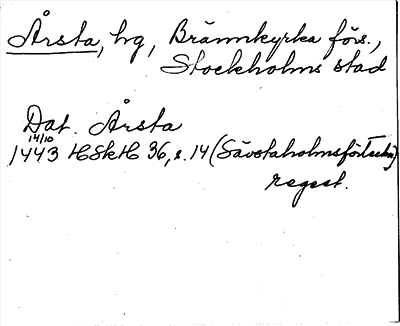 Årsta, hg, Brännkyrka förs.,
Stockholms stad
Dat. Årsta
14/10
1443 HSkH 36, s. 14 (Sävstaholmsförteckn)
regest.